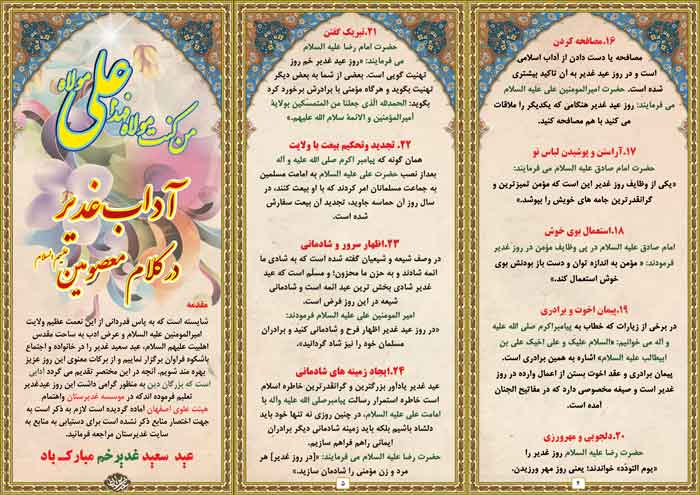 ۱۶.مصافحه کردن
مصافحه یا دست دادن از آداب اسلامی
است و در روز عید غدیر به آن تاکید بیشتری
شده است. حضرت امیرالمومنین علی علیه السلام
می فرمایند: روز عید غدیر هنگامی که یکدیگر را ملاقات
می کنید با هم مصافحه کنید.
۱۷.آراستن و پوشیدن لباس نو
حضرت امام صادق علیه السلام می فرمایند:
«یکی از وظایف روز غدیر این است که مؤمن تمیزترین و
گرانقدرترین جامه های خویش را بپوشد.»
۱۸.استعمال بوی خوش
امام صادق علیه السلام در پی وظایف مؤمن در روز غدیر
فرمودند: « مؤمن به اندازه توان و دست باز بودنش بوی
خوش استعمال کند.»
۱۹.پیمان اخوت و برادری
در برخی از زیارات که خطاب به پیامبراکرم صلی الله علیه
و آله می خوانیم: «السلام علیک و علی اخیک علی بن
ابیطالب علیه السلام» اشاره به همین برادری است.
پیمان برادری و عقد اخوت بستن از اعمال وارده در روز
غدیر است و صیغه مخصوصی دارد که در مفاتیح الجنان
آمده است.
۲۰.دلجویی و مهرورزی
حضرت رضا علیه السلام روز غدیر را
«یوم التودّد» خواندند؛ یعنی روز مهر ورزیدن.
۴
۲۱.تبریک گفتن
حضرت امام رضا علیه السلام
می فرمایند: «روز عید غدیر خم روز
تهنیت گویی است. بعضی از شما به بعض دیگر
تهنیت بگوید و هرگاه مؤمنی با برادرش برخورد کرد
بگوید: الحمدلله الذی جعلنا من المتمسکین بولایة
أمیرالمؤمنین و الائمة سلام الله علیهم.»
۲۲. تجدید وتحکیم بیعت با ولایت
همان گونه که پیامبر اکرم صلی الله علیه و آله
بعداز نصب حضرت علی علیه السلام به امامت مسلمین
به جماعت مسلمانان امر کردند که با او بیعت کنند، در
سال روز آن حماسه جاوید، تجدید آن بیعت سفارش
شده است.
۲۳.اظهار سرور و شادمانی
در وصف شیعه و شیعیان گفته شده است که به شادی ما
ائمه شادند و به حزن ما محزون؛ و مسلّم است که عید
غدیر شادی بخش ترین عید ائمه است و شادمانی
شیعه در این روز فرض است.
امیر المومنین علی علیه السلام فرمودند:
«در روز عید غدیر اظهار فرح و شادمانی کنید و برادران
مسلمان خود را نیز شاد گردانید»
۲۴.ایجاد زمینه های شادمانی
عید غدیر یادآور بزرگترین و گرانقدرترین خاطره اسلام
است خاطره استمرار رسالت پیامبرصلی الله علیه وآله با
امامت علی علیه السلام، در چنین روزی نه تنها خود باید
دلشاد باشیم بلکه باید زمینه شادمانی دیگر برادران
ایمانی راهم فراهم سازیم.
حضرت رضا علیه السلام می فرمایند: «[در روز غدیر] هر
مرد و زن مؤمنی را شادمان سازید.»
۵
من کنت مولاه فهذا علی مولاه
آداب غدیر
در کلام معصومین علیهم السلام
مقدمه
شایسته است که به پاس قدردانی از این نعمت عظیم ولایت
امیرالمومنین علیه السلام و عرض ادب به ساحت مقدس
اهلبیت علیهم السلام، عید سعید غدیر را در خانواده و اجتماع
باشکوه فراوان برگزار نماییم و از برکات معنوی این روز عزیز
بهره مند شویم. آنچه در این مختصر تقدیم می گردد آدابی
است که بزرگان دین به منظور گرامی داشت این روز عیدغدیر
تعلیم فرموده اندکه در موسسه غدیرستان واهتمام
هیئت علوی اصفهان آماده گردیده است لازم به ذکر است به
جهت اختصار منابع ذکر نشده است برای دستیابی به منابع به
سایت غدیرستان مراجعه فرمائید.
عید سعید غدیرخم مبارک باد